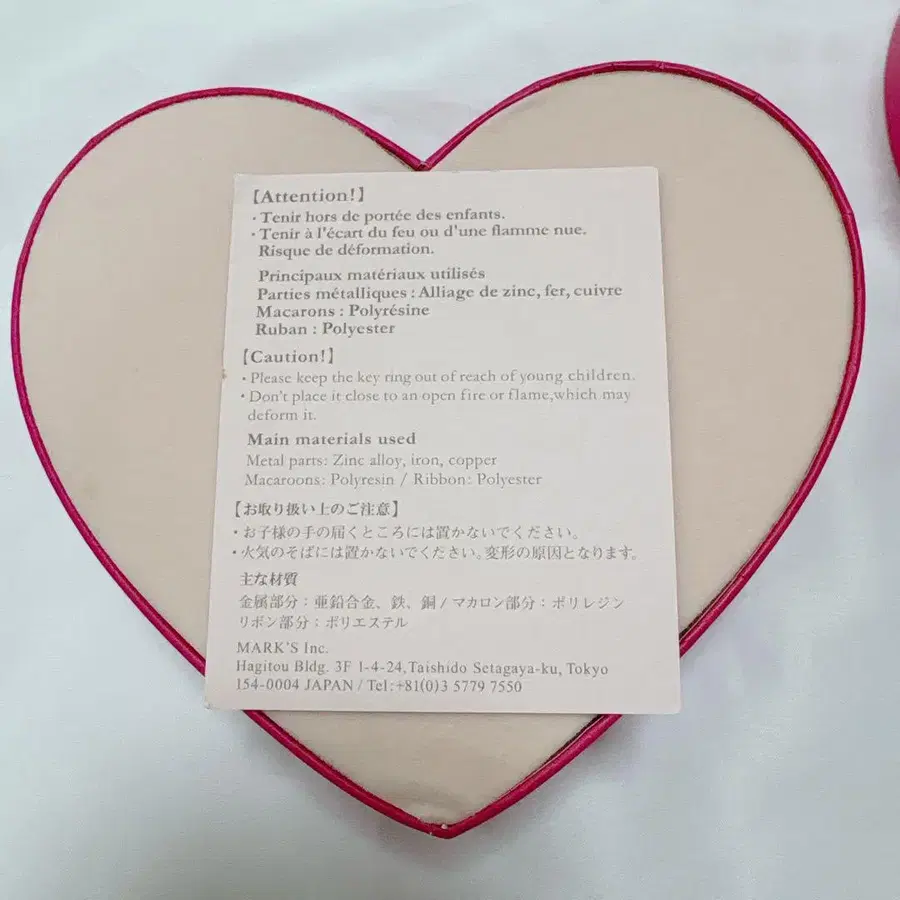 【Attention!】
・Tenir hors de portée des enfants.
・Tenir à l'écart du feu ou d'une flamme nue.
Risque de déformation.
Principaux matériaux utilisés
Parties métalliques : Alliage de zinc, fer, cuivre
Macarons : Polyrésine
Ruban : Polyester
【Caution!】
・Please keep the key ring out of reach of young children.
・Don't place it close to an open fire or flame,which may
deform it.
Main materials used
Metal parts: Zinc alloy, iron, copper
Macaroons: Polyresin / Ribbon: Polyester
【お取り扱い上のご注意】
・お子様の手の届くところには置かないでください。
・火気のそばには置かないでください。変形の原因となります。
主な材質
金属部分：亜鉛合金、鉄、銅 / マカロン部分：ポリレジン
リボン部分：ポリエステル
MARK'S Inc.
Hagitou Bldg. 3F 1-4-24,Taishido Setagaya-ku, Tokyo
154-0004 JAPAN / Tel:+81(0)3 5779 7550